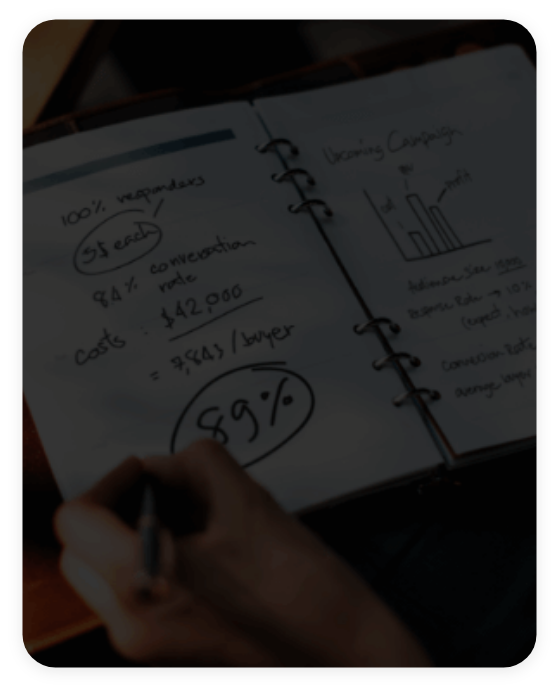 100% responders
5$ each
84% conversation
rate
costs : $42,000
= 7,843 / buyer
89%
Upcoming Campaign
profit
Response Rate → 10%
(expect.
Conversion Rate
average buyer